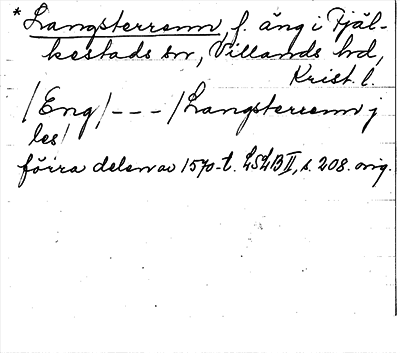 * Langsterrenn f. äng i Fjäl-
kestads sn, Villands hd,
Krist. l.
/Eng/ - - - /Langsterrenn j
les/
förra delen av 1570-t. LSLB II, s. 208. orig.